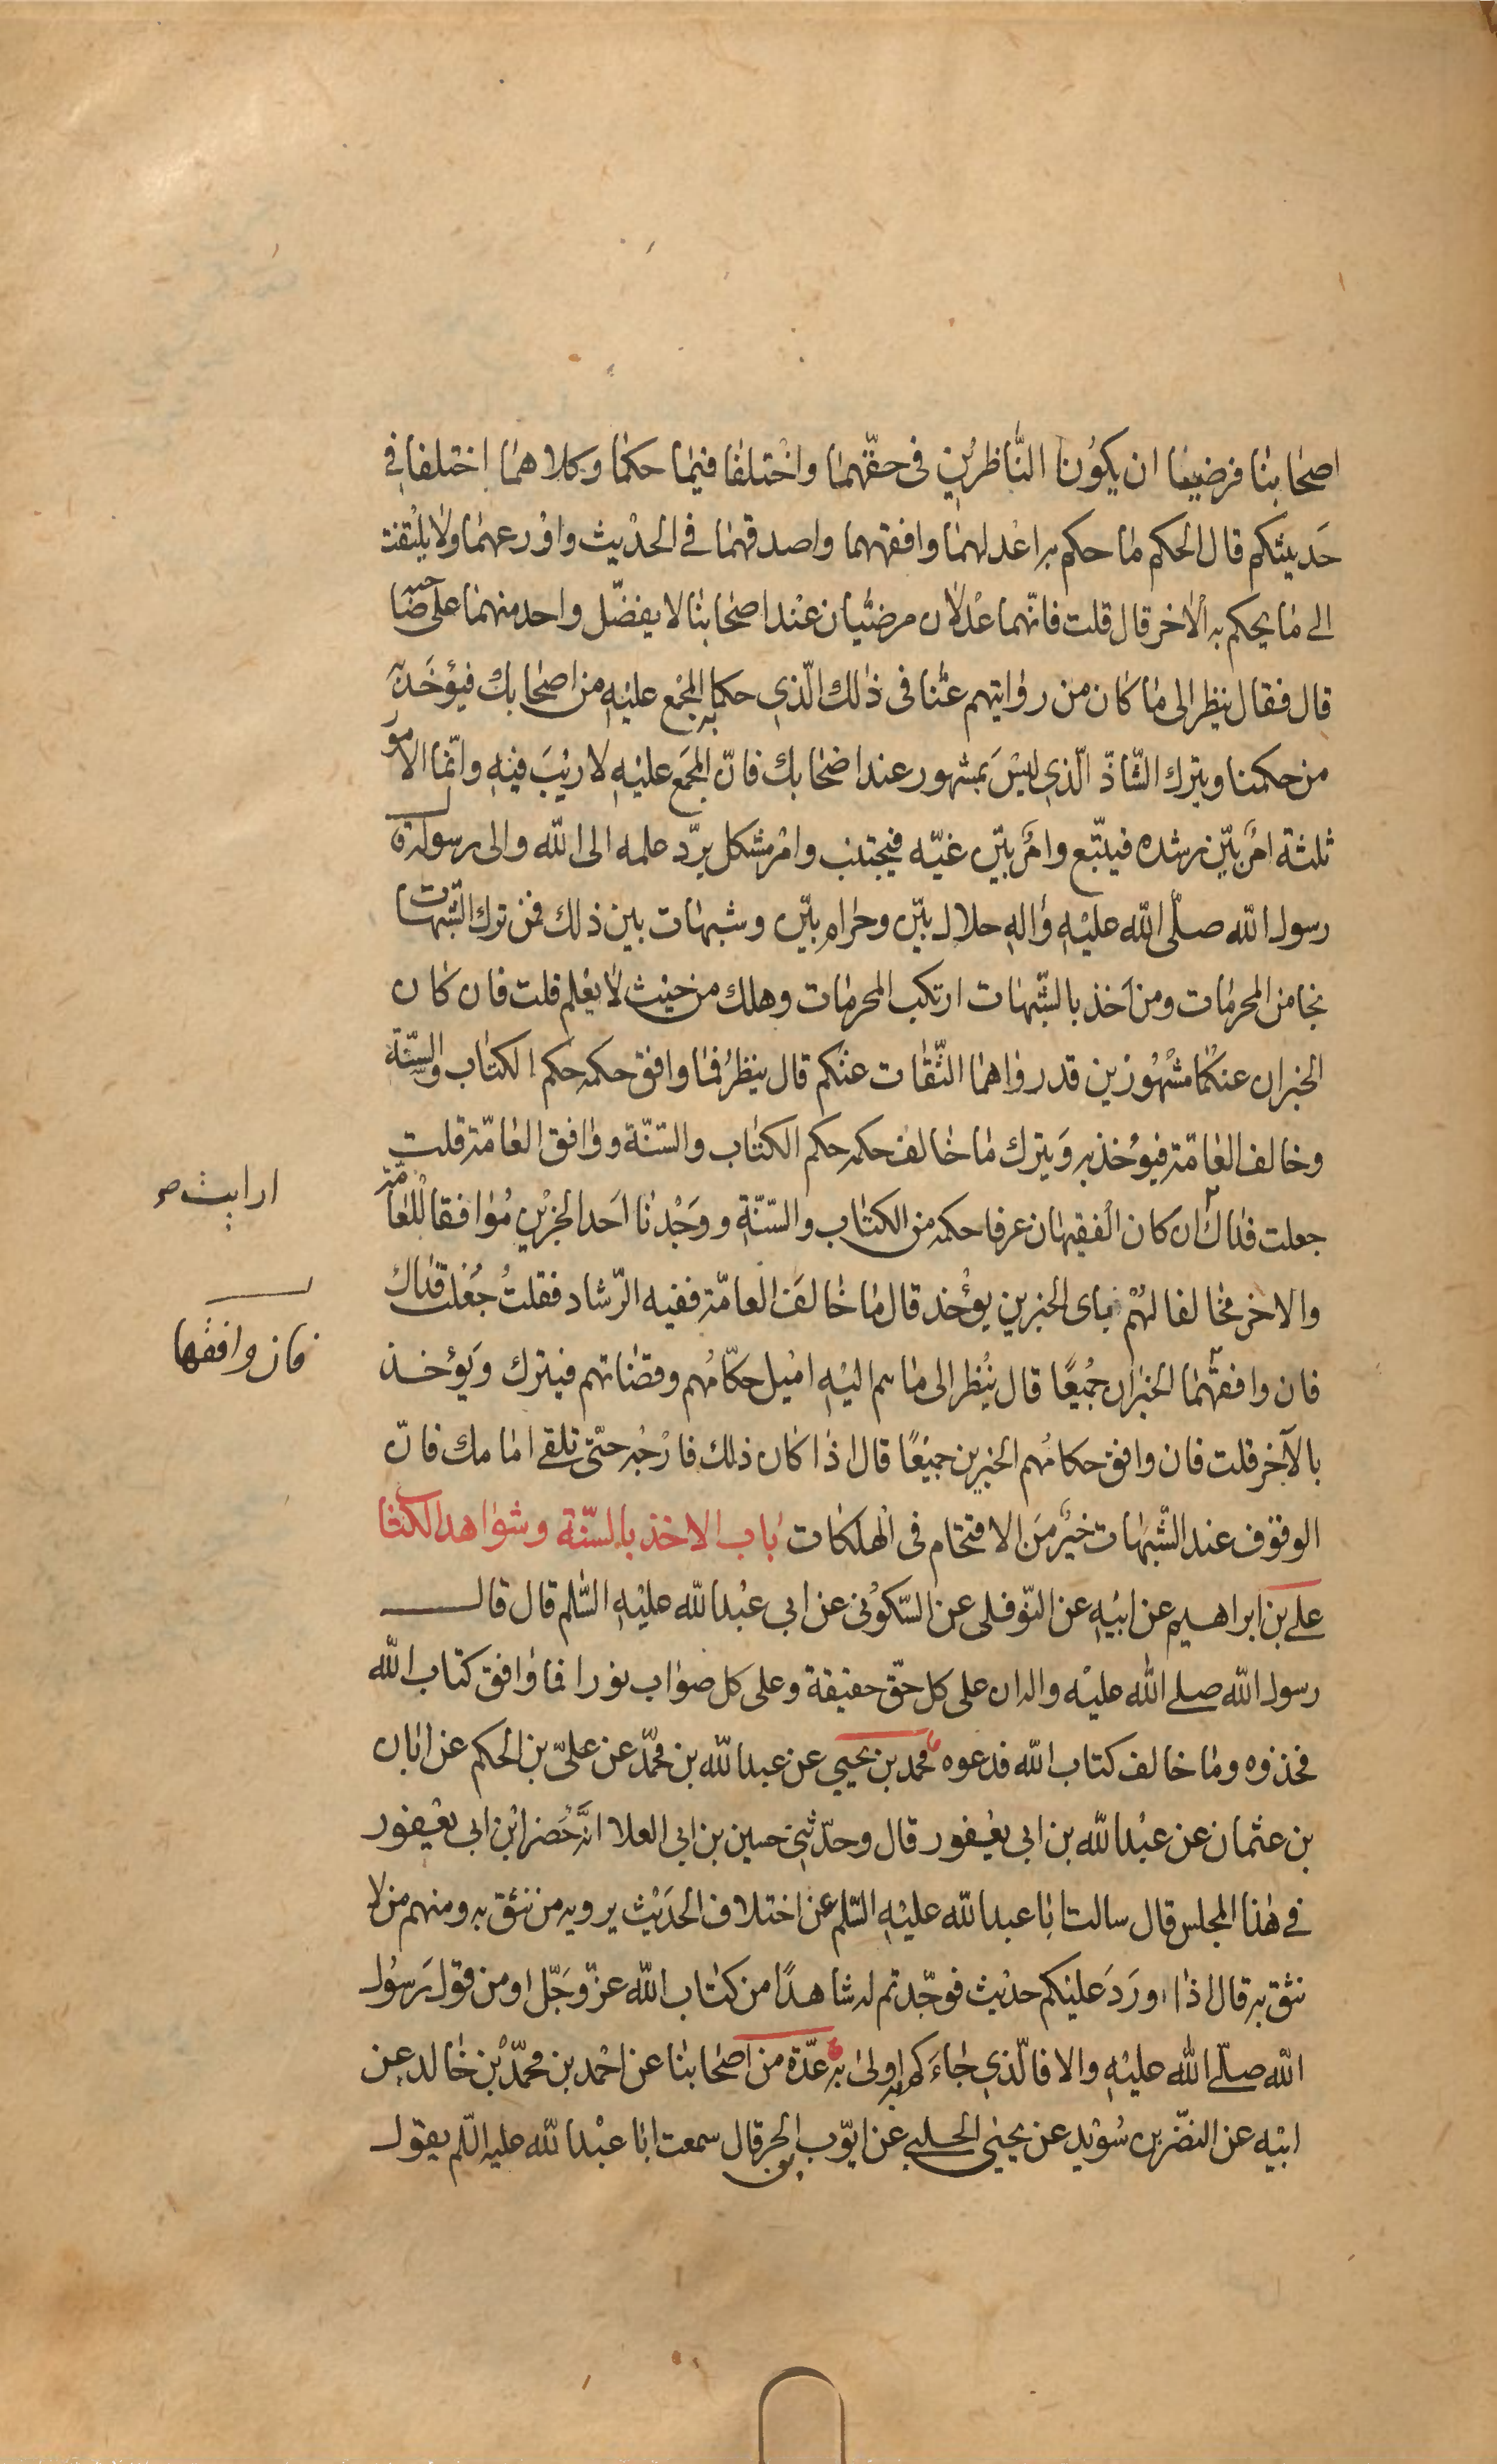 اصحابنا فرضيا ان يكونا النّاظرين فى حقّهما واختلفا فيما حكما وكلاهما اختلفا فى
حديثكم قال الحكم ما حكم به اعدلهما وافقههما واصدقهما فى الحديث واورعهما ولا يلتفت
الى ما يحكم به الاخر قال قلت فانّهما عدلان مرضيّان عند اصحابنا لا يفضّل واحد منهما على صاحبه
قال فقال ينظر الى ما كان من روايتهم عنّا فى ذلك الّذي حكما به المجمع عليه من اصحابك فيؤخذ به
من حكمنا ويترك الشّاذّ الّذي ليس بمشهور عند اصحابك فانّ المجمع عليه لا ريب فيه وانّما الامور
ثلثة امر بيّن رشده فيتّبع وامر بيّن غيّه فيجتنب وامر مشكل يردّ علمه الى الله والى رسوله قال
رسول الله صلّى الله عليه واله حلال بيّن وحرام بيّن وشبهات بين ذلك فمن ترك الشّبهات
نجا من المحرمات ومن اخذ بالشّبهات ارتكب المحرمات وهلك من حيث لا يعلم قلت فان كان
الخبران عنكما مشهورين قد رواهما الثّقات عنكم قال ينظر فما وافق حكمه حكم الكتاب والسّنّة
وخالف العامّة فيؤخذ به ويترك ما خالف حكمه حكم الكتاب والسّنّة ووافق العامّة قلت
جعلت فداك ان كان الفقيهان عرفا حكمه من الكتاب والسّنّة ووجدنا احد الخبرين موافقا للعامّة
ارايت صح
والاخر مخالفا لهم باى الخبرين يؤخذ قال ما خالف العامّة ففيه الرّشاد فقلت جعلت فداك
فان وافقها
فان وافقهما الخبران جميعًا قال ينظر الى ما هم اليه اميل حكّامهم وقضاتهم فيترك ويؤخذ
بالآخر قلت فان وافق حكامهم الخبرين جميعًا قال اذا كان ذلك فارجه حتّى تلقى امامك فانّ
الوقوف عند الشّبهات خير من الاقتحام فى الهلكات باب الاخذ بالسّنّة وشواهد الكتاب
على بن ابراهيم عن ابيه عن النّوفلى عن السّكونى عن ابى عبدالله عليه السّلم قال قال
رسول الله صلى الله عليه واله ان على كل حقّ حقيقة وعلى كل صواب نورا فما وافق كتاب الله
فخذوه وما خالف كتاب الله فدعوه محمد بن يحيى عن عبدالله بن محمّد عن علىّ بن الحكم عن ابان
بن عثمان عن عبدالله بن ابى يعفور قال وحدّثنى حسين بن ابى العلا انّه حضر ابن ابى يعفور
فى هذا المجلس قال سالت ابا عبدالله عليه السّلم عن اختلاف الحديث يرويه من نثق به ومنهم من لا
نثق به قال اذا ورد عليكم حديث فوجّدتم له شاهدًا من كتاب الله عزّ وجلّ او من قول رسول
الله صلّى الله عليه والا فالّذي جاءكم به اولى به عدّة من اصحابنا عن احمد بن محمّد بن خالد عن
ابيه عن النضّر بن سويد عن يحيى الحلبى عن ايّوب بن الحر قال سمعت ابا عبدالله عليه السّلم يقول